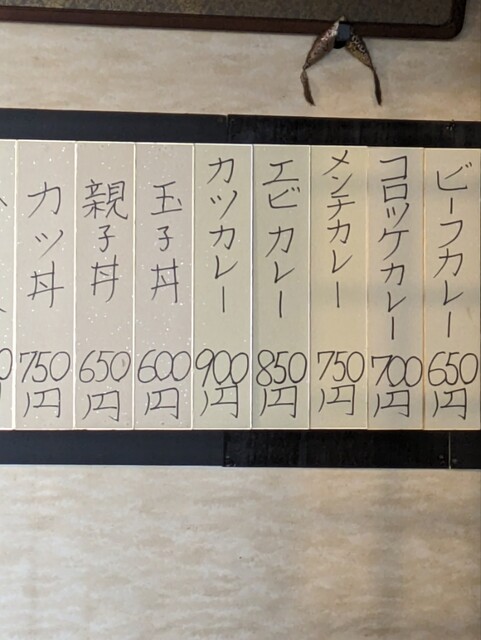 ビーフカレー
650円
コロッケカレー
700円
メンチカレー
750円
エビカレー
850円
カツカレー
900円
玉子丼
600円
親子丼
650円
カツ丼
750円